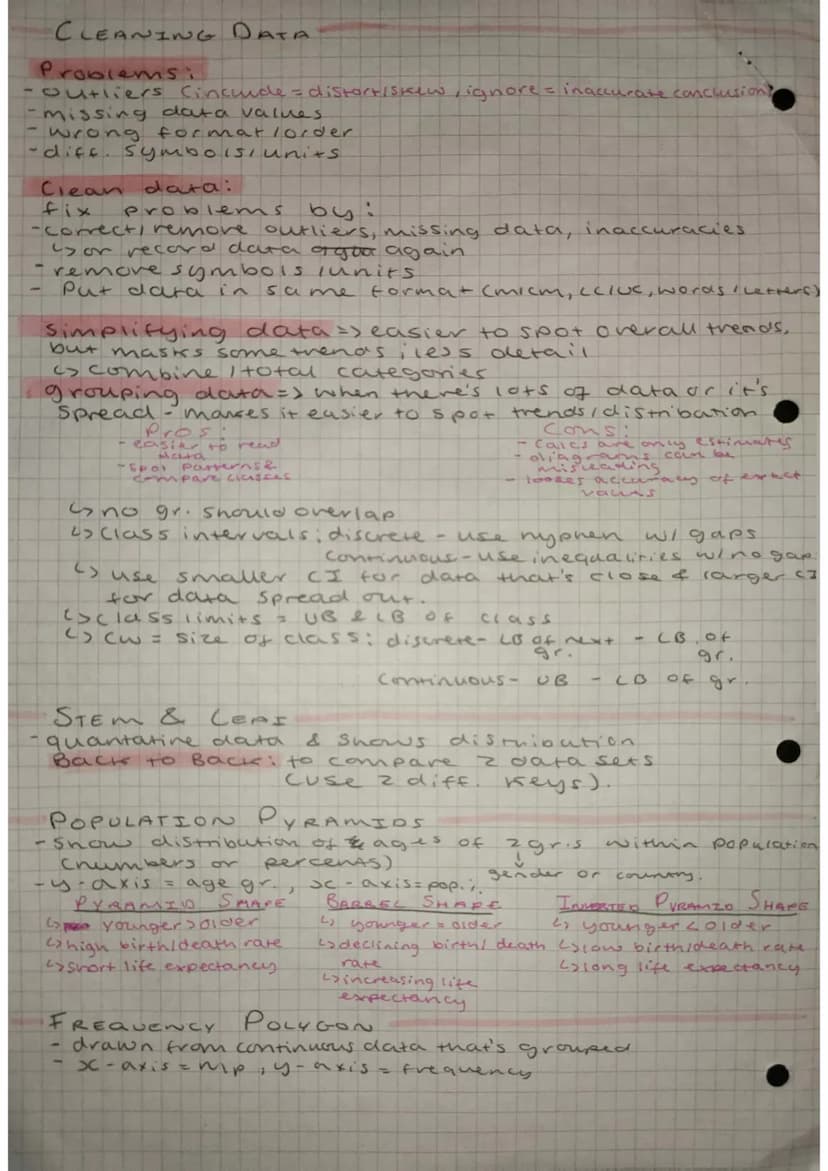 CLEANING DATA
Problems:
- outliers (include = distort/skew, ignore = inaccurate conclusion)
- missing data values
- wrong format/order
- diff. symbols/units
Clean data:
fix problems by:
- correct/remove outliers, missing data, inaccuracies
↳ or record data again
- remove symbols/units
- Put data in same format (m/cm, LC/UC, words/letters)
Simplifying data => easier to spot overall trends,
but masks some trends; less detail
↳ combine/total categories
grouping data => when there's lots of data or it's
spread - makes it easier to spot trends/distribution
Pros:
- easier to read
data
- spot patterns &
compare classes
Cons:
- calcs are only estimates
- diagrams can be
misleading
- looses accuracy of exact
values
↳ no gr. should overlap
↳ class intervals: discrete - use hyphen w/ gaps
continuous - use inequalities w/ no gap
↳ use smaller CI for data that's close & larger CI
for data spread out.
↳ class limits = UB & LB of class
↳ CW = size of class: discrete - LB of next gr. - LB of gr.
continuous - UB - LB of gr.
STEM & LEAF
- quantative data & shows distribution
Back to Back: to compare 2 data sets
(use 2 diff. keys).
POPULATION PYRAMIDS
- show distribution of ages of 2 gr.s within population
(numbers or percents)
↓
gender or country.
- y-axis = age gr., x-axis = pop.
PYRAMID SHAPE
↳ younger > older
↳ high birth/death rate
↳ short life expectancy
BARREL SHAPE
↳ younger = older
↳ declining birth/death
rate
↳ increasing life
expectancy
INVERTED PYRAMID SHAPE
↳ younger < older
↳ low birth/death rate
↳ long life expectancy
FREQUENCY POLYGON
- drawn from continuous data that's grouped
- x-axis = mp, y-axis = frequency